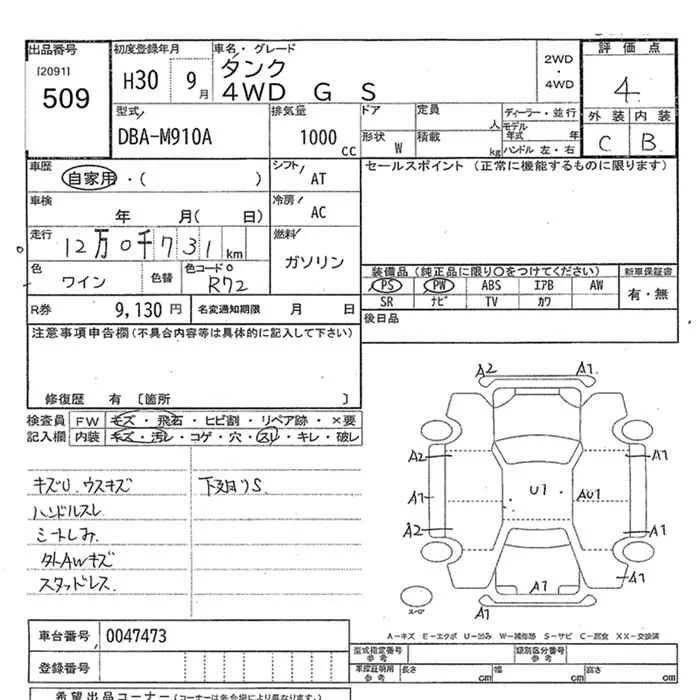 出品番号
[2091]
509
初度登録年月
H30 9月
車名・グレード
タンク
4WD G S
2WD
・
4WD
評価点
4
外装 内装
C B
型式
DBA-M910A
排気量
1000
cc
ドア
形状
W
定員
人
積載
kg
ディーラー・並行
モデル
年式 年
ハンドル 左・右
車歴
自家用・( )
シフト
AT
車検
年 月( 日)
冷房
AC
走行
12万0千731
km
燃料
ガソリン
色
ワイン
色替
色コードNo
R72
R券
9,130 円
名変通知期限 月 日
セールスポイント (正常に機能するものに限ります)
装備品 (純正品に限り○をつけてください)
PS PW ABS エアB AW
SR ナビ TV カワ
新車保証書
有・無
後日品
注意事項申告欄(不具合内容等は具体的に記入して下さい)
修復歴 有 [箇所 ]
検査員
記入欄
FW キズ・飛石・ヒビ割・リペア跡・×要
内装 キズ・汚レ・コゲ・穴・スリ・キレ・破レ
キズU.ウスキズ
ハンドルスレ
シートしみ
外AWキズ
スタッドレス
下廻りS
A2 A1
A2 A1
A1 U1 AU1
A2 A1
A1 A1
A1
スペア
A-キズ E-エクボ U-凹み W-補修跡 S-サビ C-腐食 XX-交換済
車台番号 0047473
登録番号
型式指定番号
参考
類別区分番号
参考
車庫証明用
参考
長さ cm 幅 cm 高さ cm
希望出品コーナー(コーナーは各会場により異なります。)